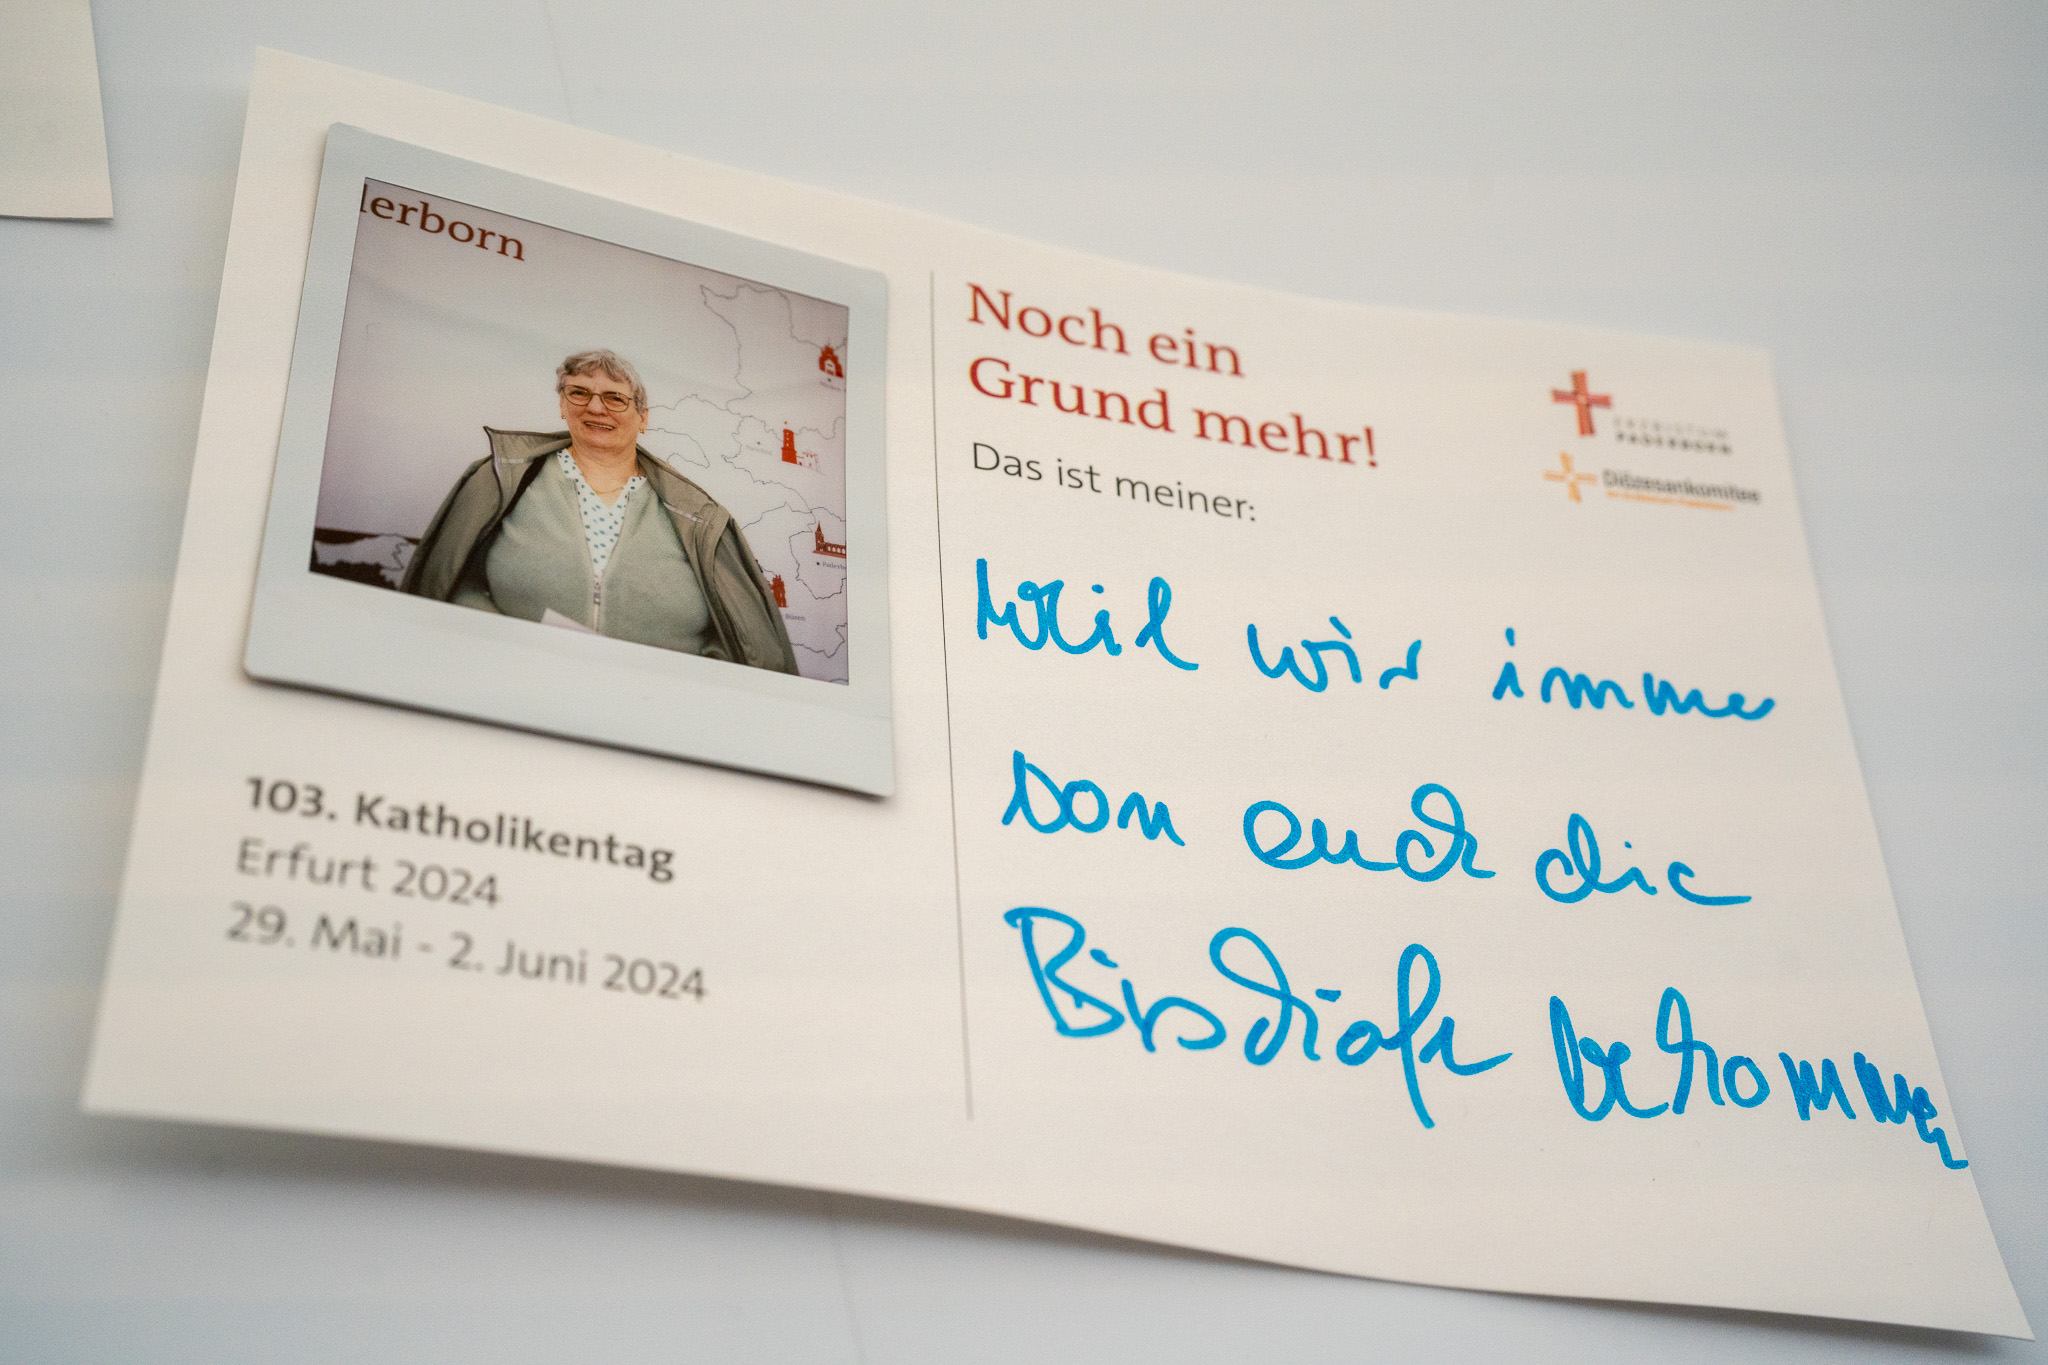 derborn
103. Katholikentag
Erfurt 2024
29. Mai - 2. Juni 2024
Noch ein
Grund mehr!
Das ist meiner:
ERZBISTUM
PADERBORN
Diözesankomitee
Weil wir immer
von euch die
Bischöfe bekommen